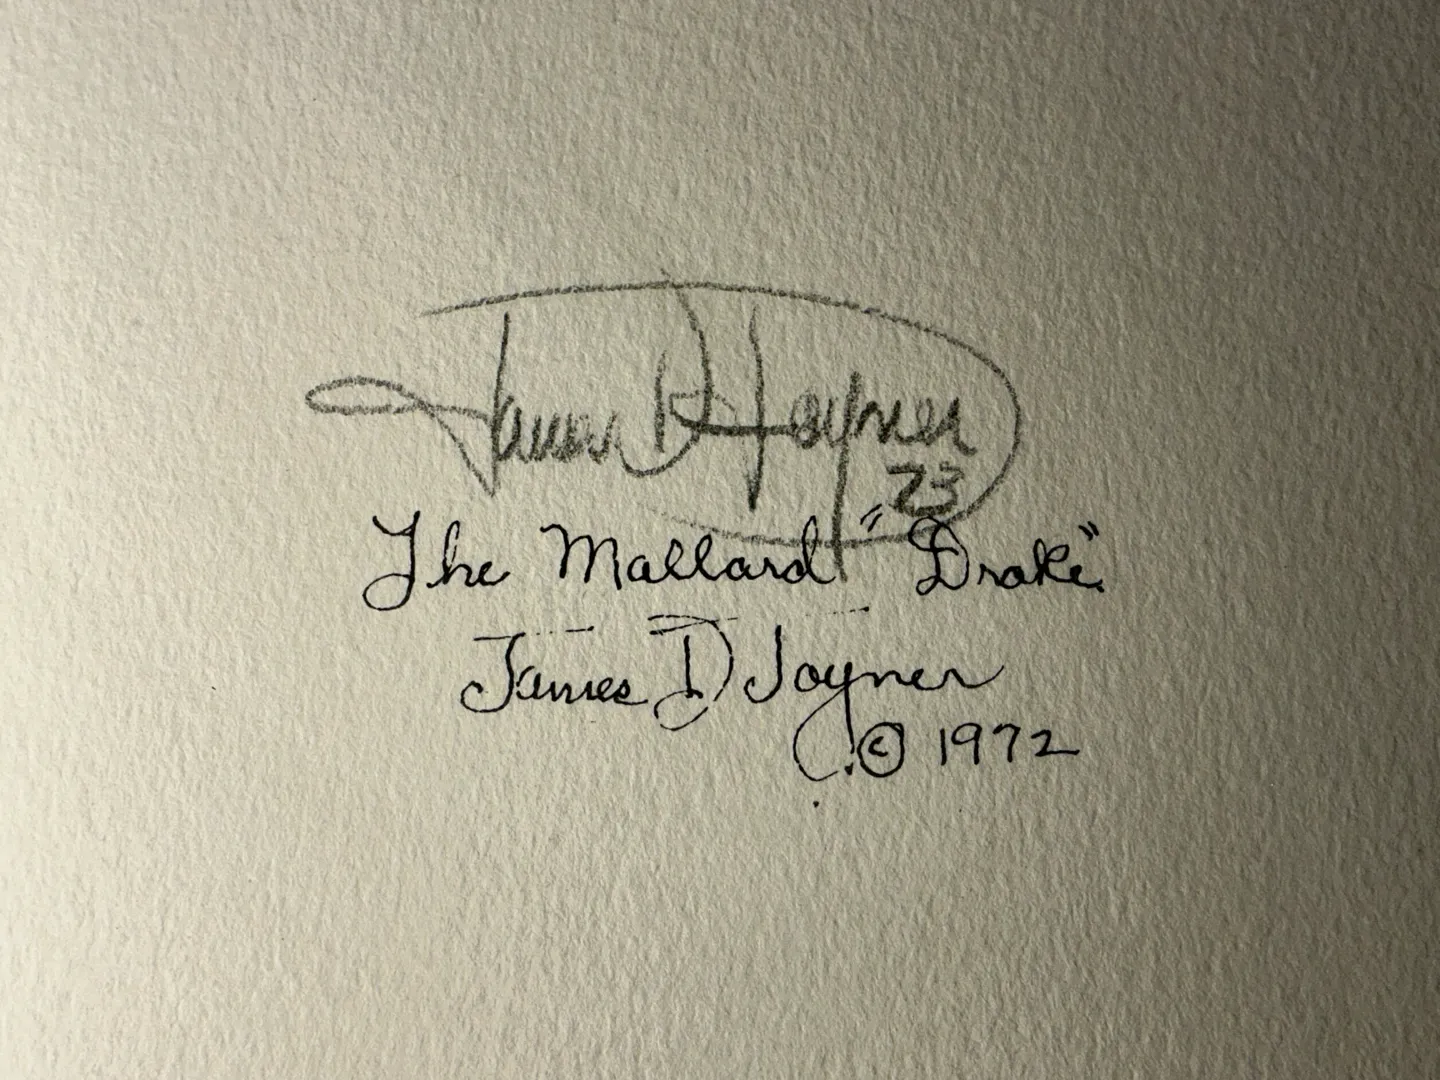 James D Joyner
73
The Mallard "Drake"
James D Joyner
© 1972